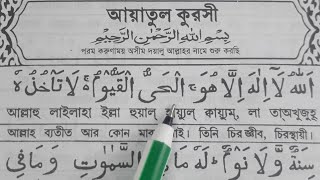 আয়াতুল কুরসী
بِسْمِ اللهِ الرَّحْمٰنِ الرَّحِيْمِ
পরম করুণাময় অসীম দয়ালু আল্লাহর নামে শুরু করছি
اَللهُ لَآ اِلٰهَ اِلَّا هُوَ ۚ اَلْحَىُّ الْقَيُّوْمُ ۚ لَا تَاْخُذُهٗ
আল্লাহু লাইলাহা ইল্লা হুয়াল ক্বায়্যুম, লা তা'অখুজুহূ
আল্লাহ ব্যতীত আর কোন তিনি চিরঞ্জীব, চিরস্থায়ী।
سِنَةٌ وَّلَا نَوْمٌ ؕ لَهٗ مَا السَّمٰوٰتِ وَمَا فِى